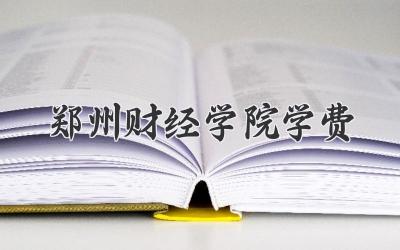 郑州财经学院学费